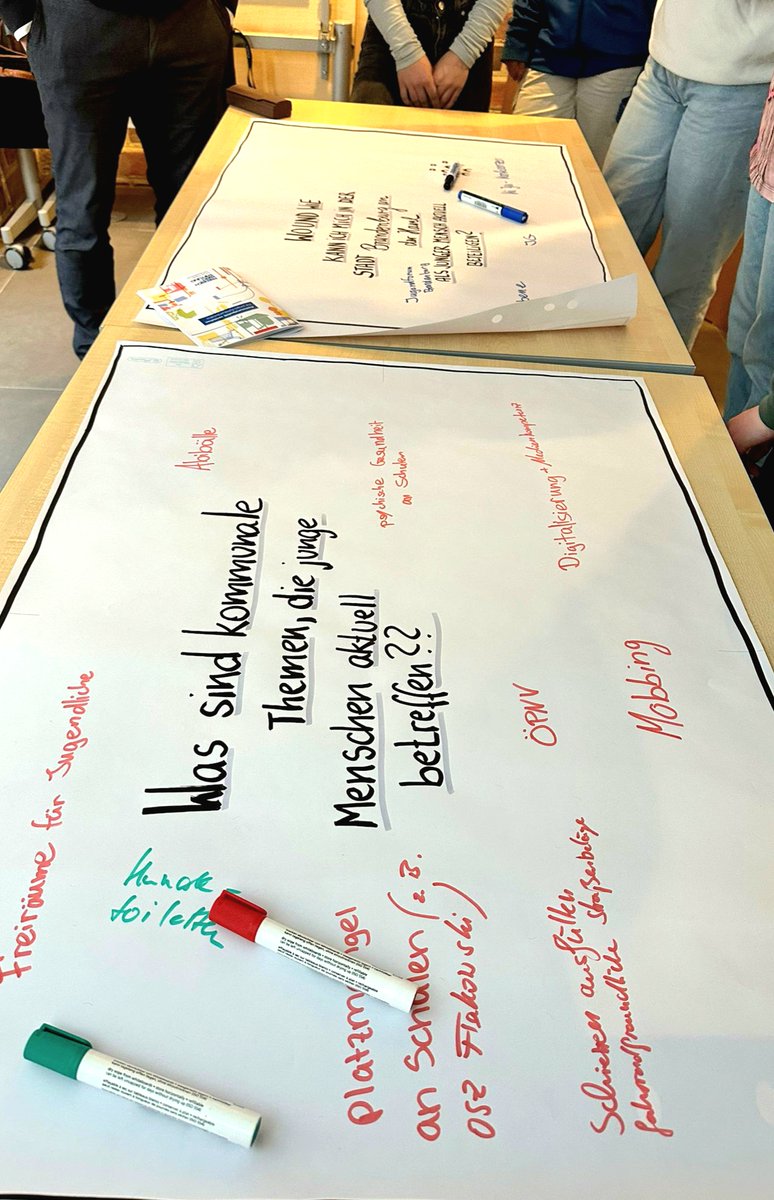 WO UND WIE
KANN ICH MICH IN DER
STADT Brandenburg an
der Havel
ALS JUNGER MENSCH AKTUELL
BETEILIGEN?
Jugendforum
Brandenburg
JG
Was sind kommunale
Themen, die junge
Menschen aktuell
betreffen??
Abibälle
psychische Gesundheit
an Schulen
Digitalisierung + Medienkompetenz
Freiräume für Jugendliche
ÖPNV
Mobbing
toiletten
an Schulen (z.B.
OSZ Flakowski)
Schienen ausfüllen
fahrradfreundliche Straßenbeläge